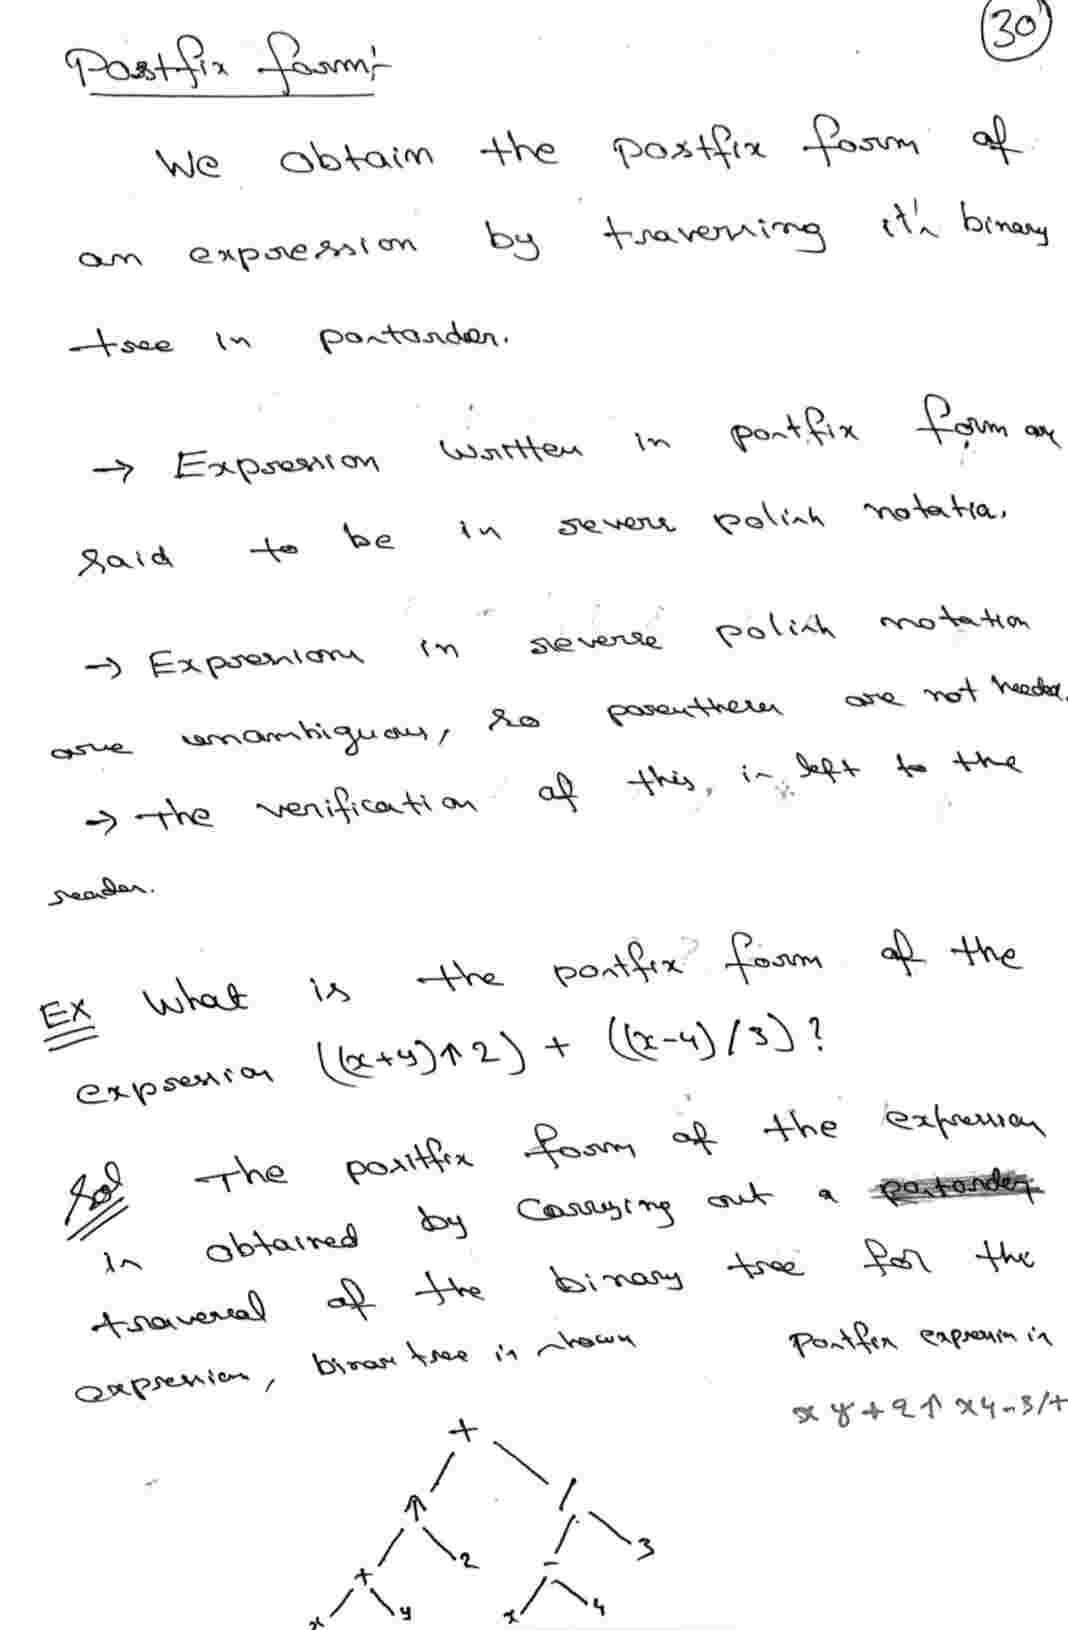 30
Postfix form:-
We obtain the postfix form of
an expression by traversing it's binary
tree in postorder.
→ Expression written in postfix form are
said to be in revers polish notatio.
→ Expressions in reverse polish notation
are unambiguous, so parentheses are not needed.
→ The verification of this, is left to the
reader.
Ex What is the postfix form of the
expression ((x+y)↑2) + ((x-4)/3)?
Sol The positfix form of the expression
is obtained by carrying out a postorder
traversal of the binary tree for the
expression, binar tree is shown
Postfix expressin is
x y + 2 ↑ x 4 - 3 / +
+
↑ /
+ 2 - 3
x y x 4